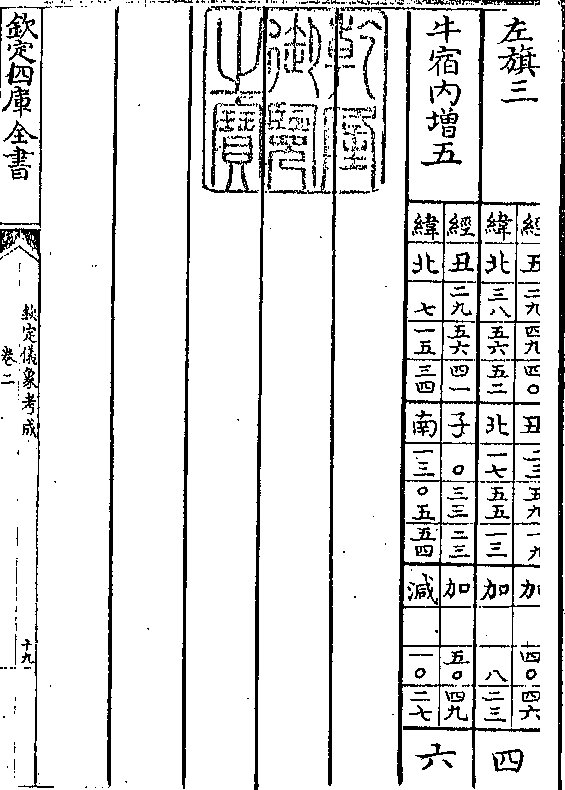 左旗三
經丑二九四九四〇丑二三五九一九加四〇四六
緯北三八五六五二北一七五五一三加八二三
四
牛宿内增五
經丑二九五六四一子〇三三二三加五〇四九
緯北七一五三四南一三〇五五四減一〇二七
六
乾隆
御覽
之寶
欽定四庫全書
欽定儀象考成
卷二
十九